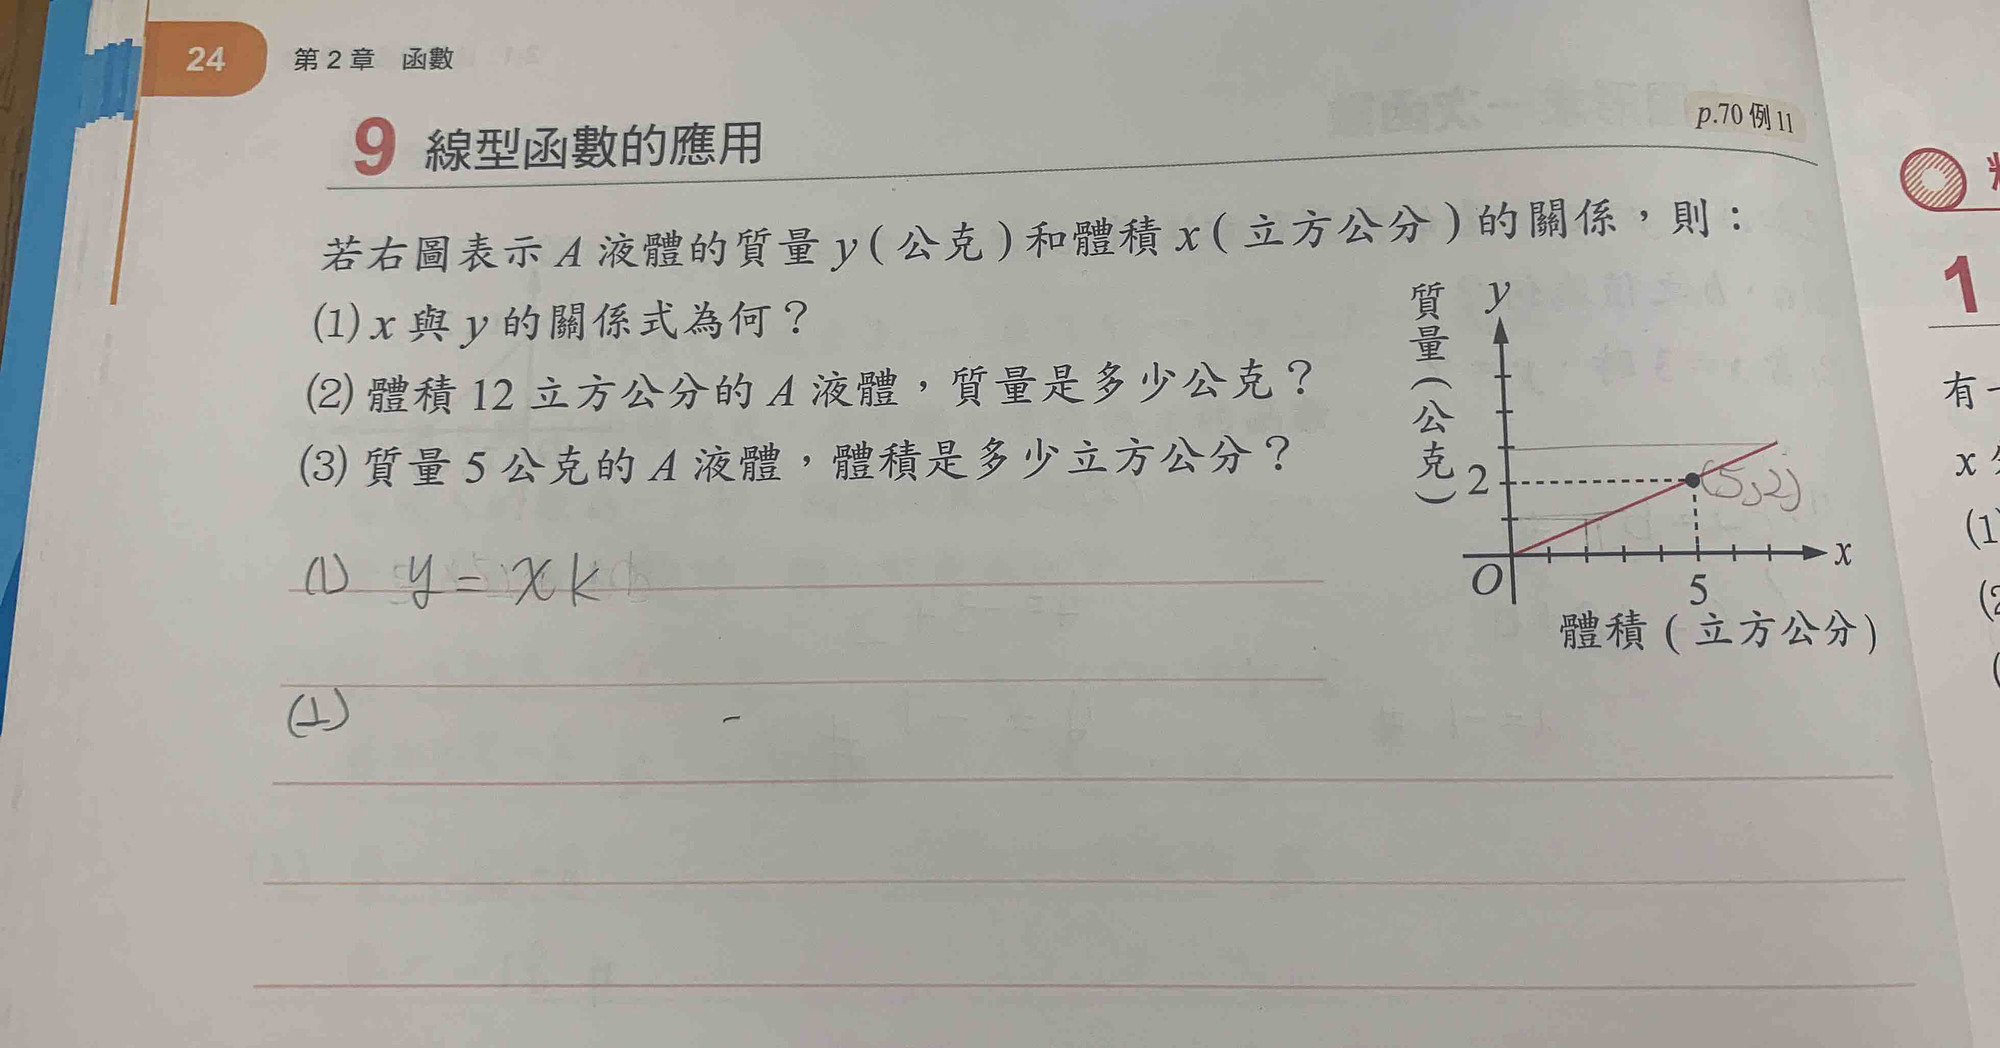 24 第2章 函數
p.70例11
9 線型函數的應用
若右圖表示A液體的質量y(公克)和體積x(立方公分)的關係，則：
(1)x與y的關係式為何？
(2)體積12立方公分的A液體，質量是多少公克？
(3)質量5公克的A液體，體積是多少立方公分？
質量(公克)
y
2
(5,2)
O
5
x
體積(立方公分)
(1) y = xk
(1)
1
有
x
(1)